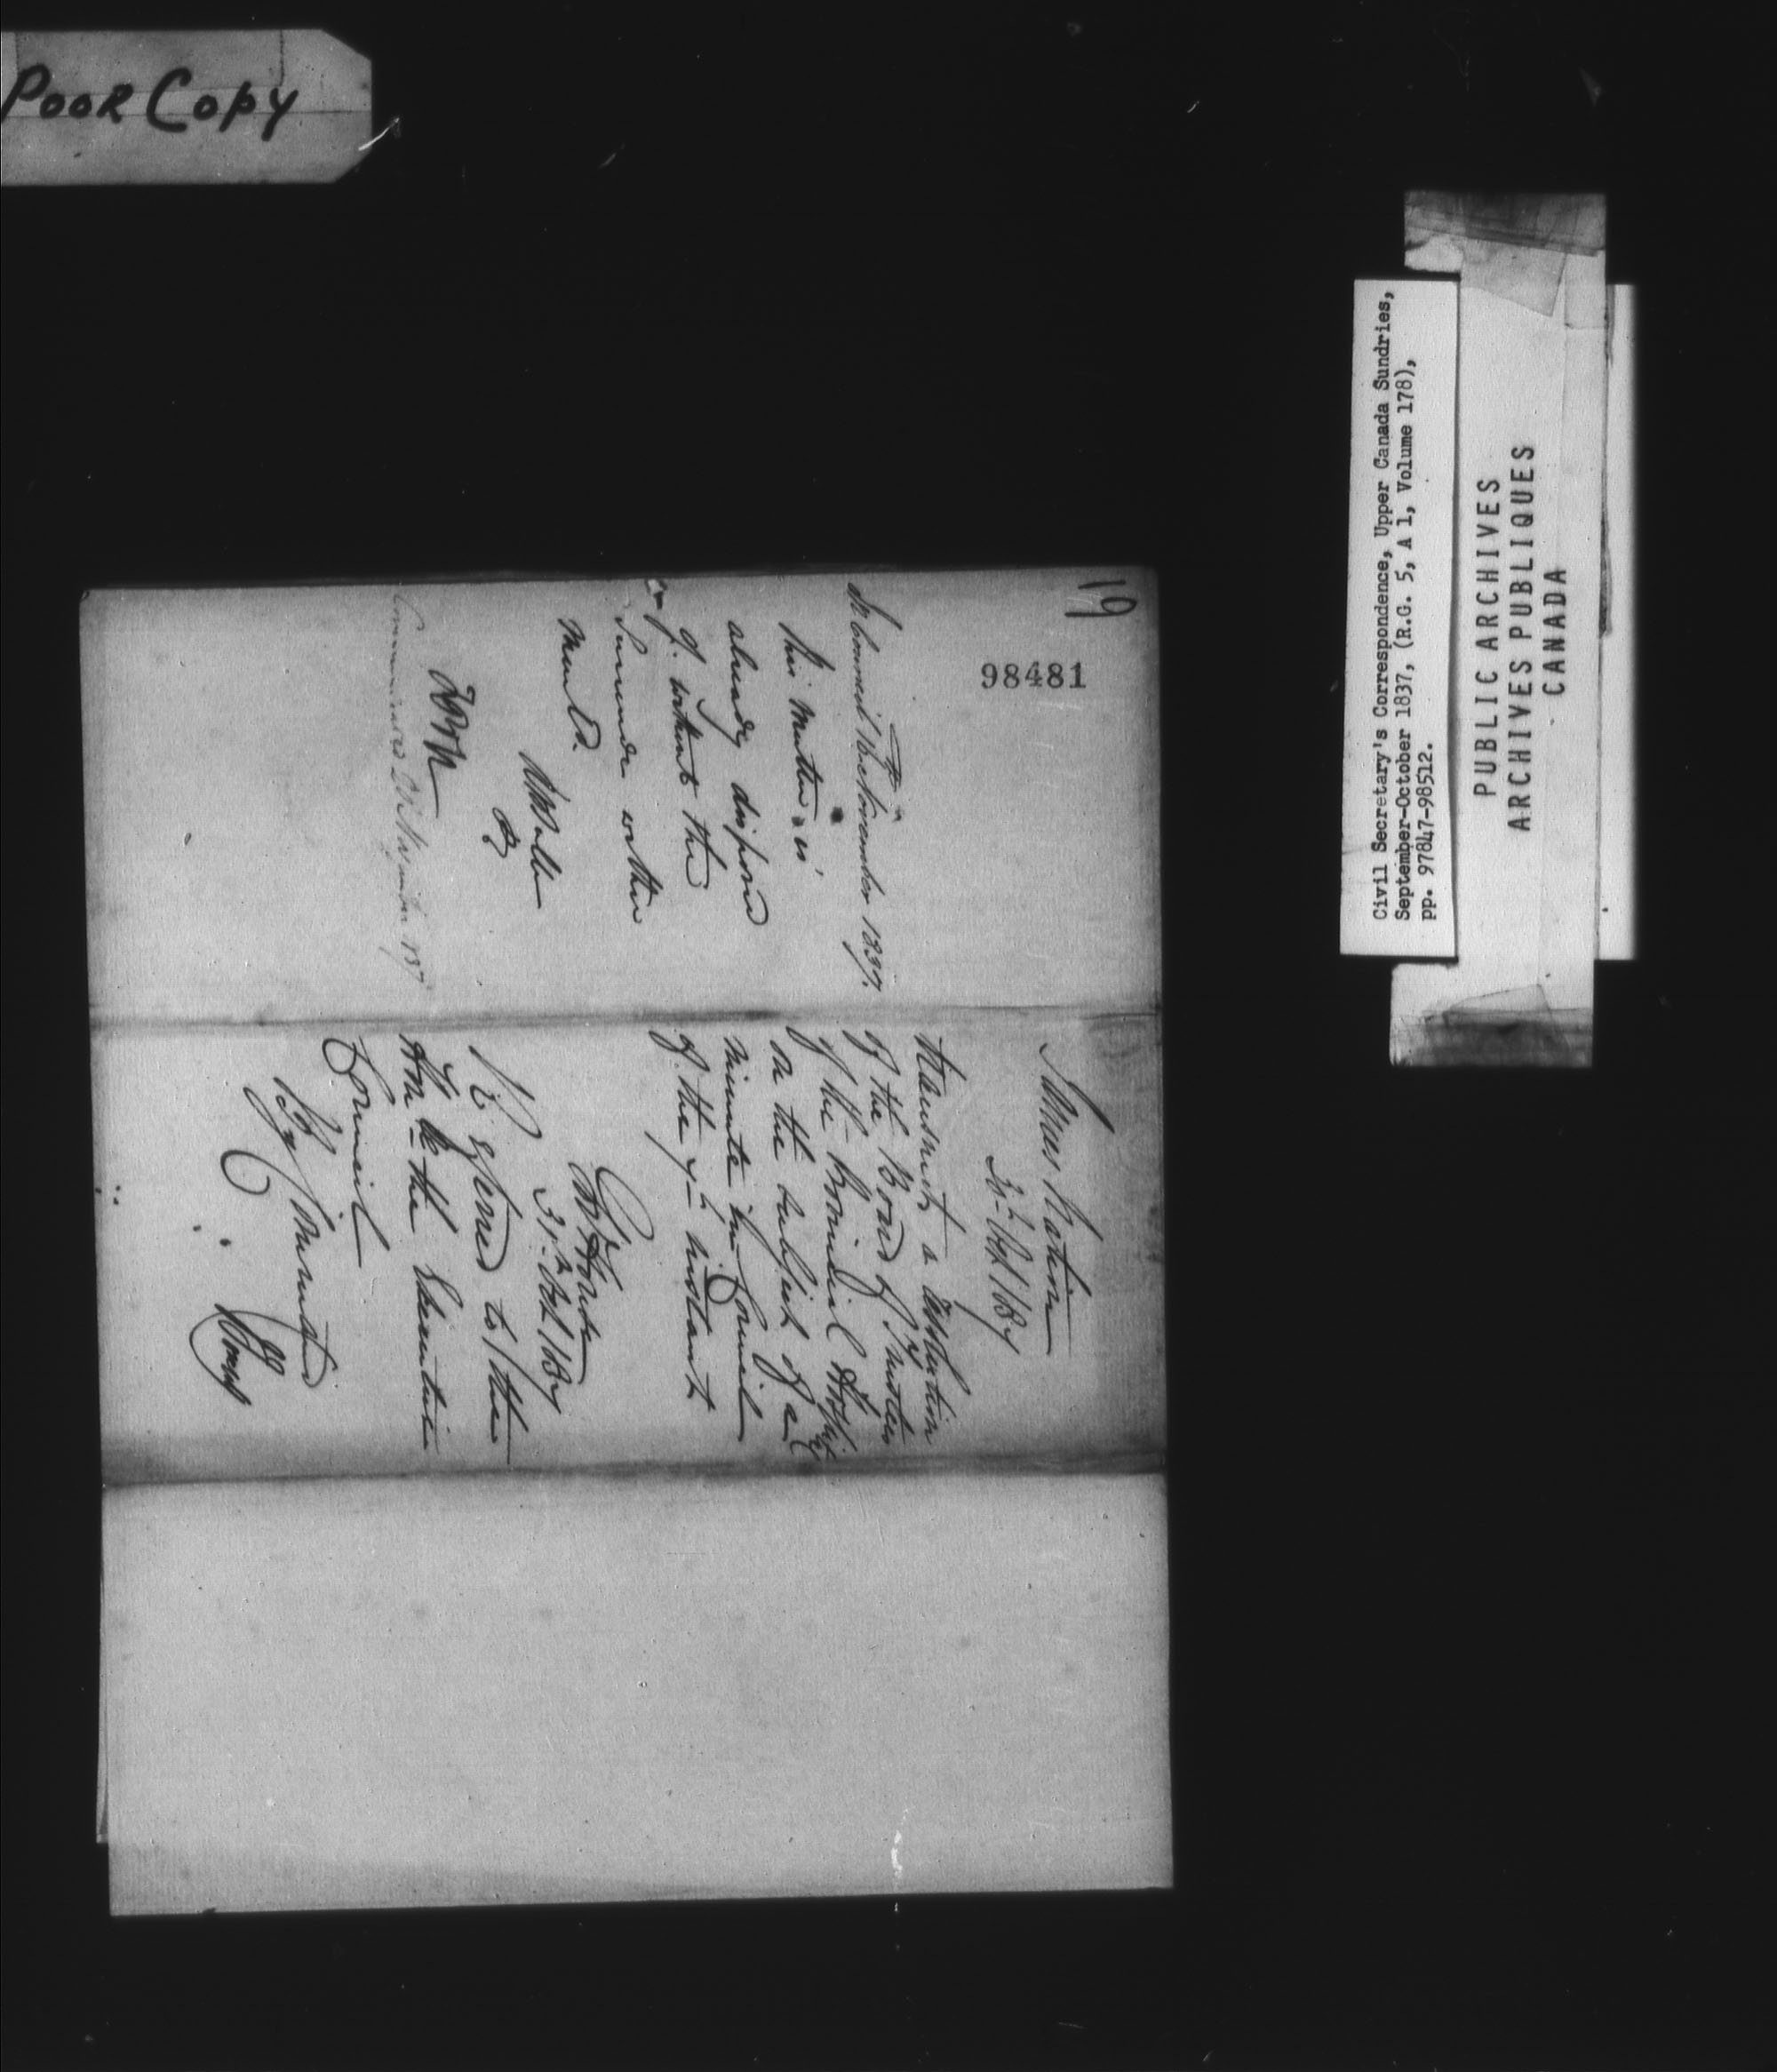 Poor Copy
Civil Secretary's Correspondence, Upper Canada Sundries,
September-October 1837, (R.G. 5, A 1, Volume 178),
pp. 97847-98512.
PUBLIC ARCHIVES
ARCHIVES PUBLIQUES
CANADA
98481
19
In Council 16th November 1837.
This matter is
already disposed
of without the
Surrender within
RBS
1837
James Nation
30th Oct 1837
Transmits a Resolution
of the Board of Trustees
of the Provincial Hospital
on the subject of a
minute in Council
of the 7th instant
Govt House
31st Oct 1837
Referred to the
Honble the Executive
Council
By Command